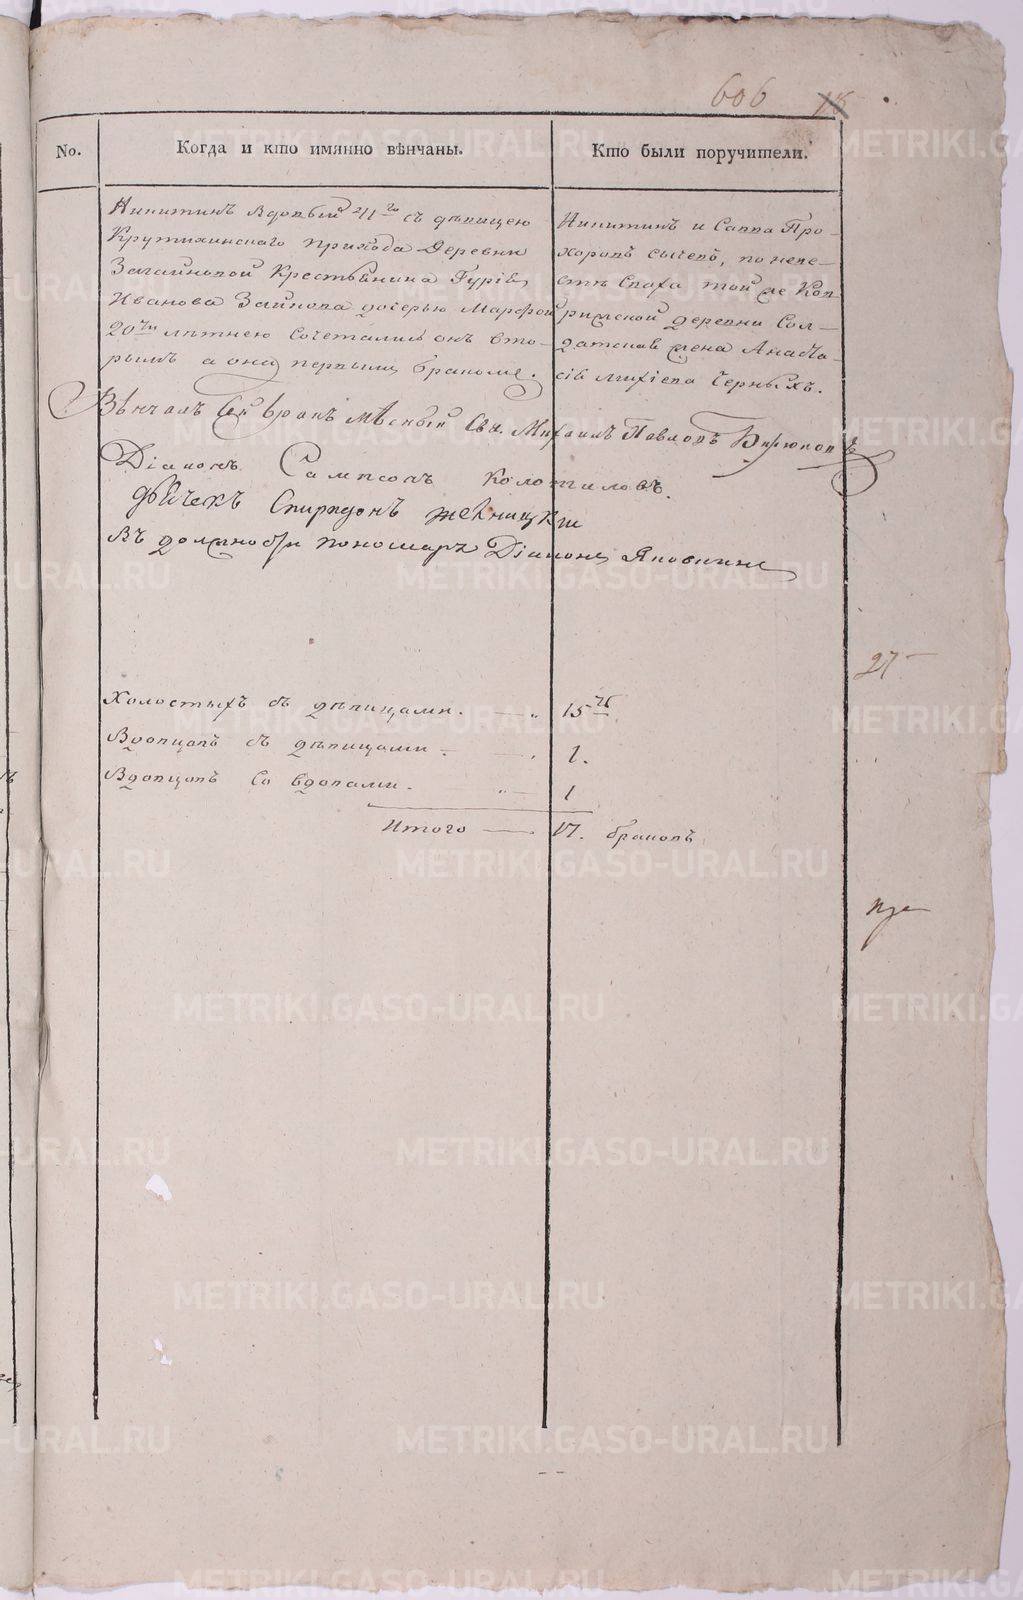 606 18
No. Когда и кто имянно вѣнчаны. Кто были поручители.
Никитинъ вдовый съ дѣвицею
Крутихинскаго прихода Деревни
Загайновой Крестьянина Гурія
Иванова Заинова дочерью Марфой
20ти лѣтнею сочетались онъ вто-
рымъ а она первымъ бракомъ.
Никитинъ и Савва Про-
хоровъ Сычевъ, по неве-
стѣ Сваха той же Ков-
ригской деревни Сол-
датская жена Анаста-
сія Михѣева Черныхъ.
Вѣнчалъ сей бракъ мѣсный Свя. Михаилъ Павловъ Бирюковъ
Діаконъ Сампсонъ Коложиловъ.
Дьячекъ Спиридонъ
Въ должности пономаря Діаконъ Яковкинъ
27
Холостыхъ съ дѣвицами. 15
Вдовцовъ съ дѣвицами 1.
Вдовцовъ со вдовами. 1
Итого 17. браковъ
METRIKI.GASO-URAL.RU